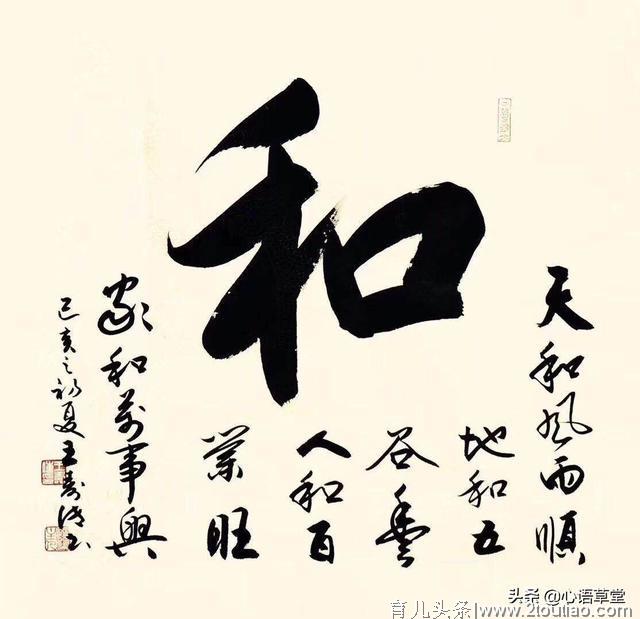 和
天和风雨順
地和五
谷豐
人和百
業旺
家和萬事興
己亥之初夏王壽书
头条 @心语草堂
育儿头条www.2toutiao.com